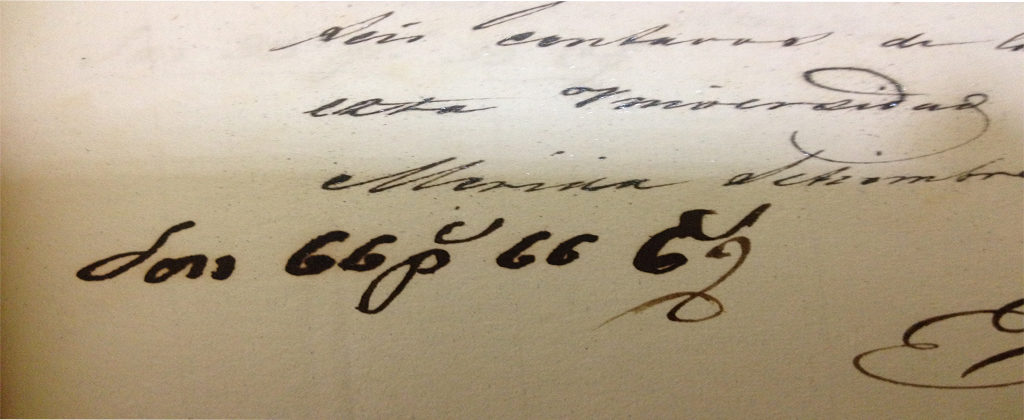 Seis centavos de l
esta Universidad
Merida Setiembre
Son 66p 66